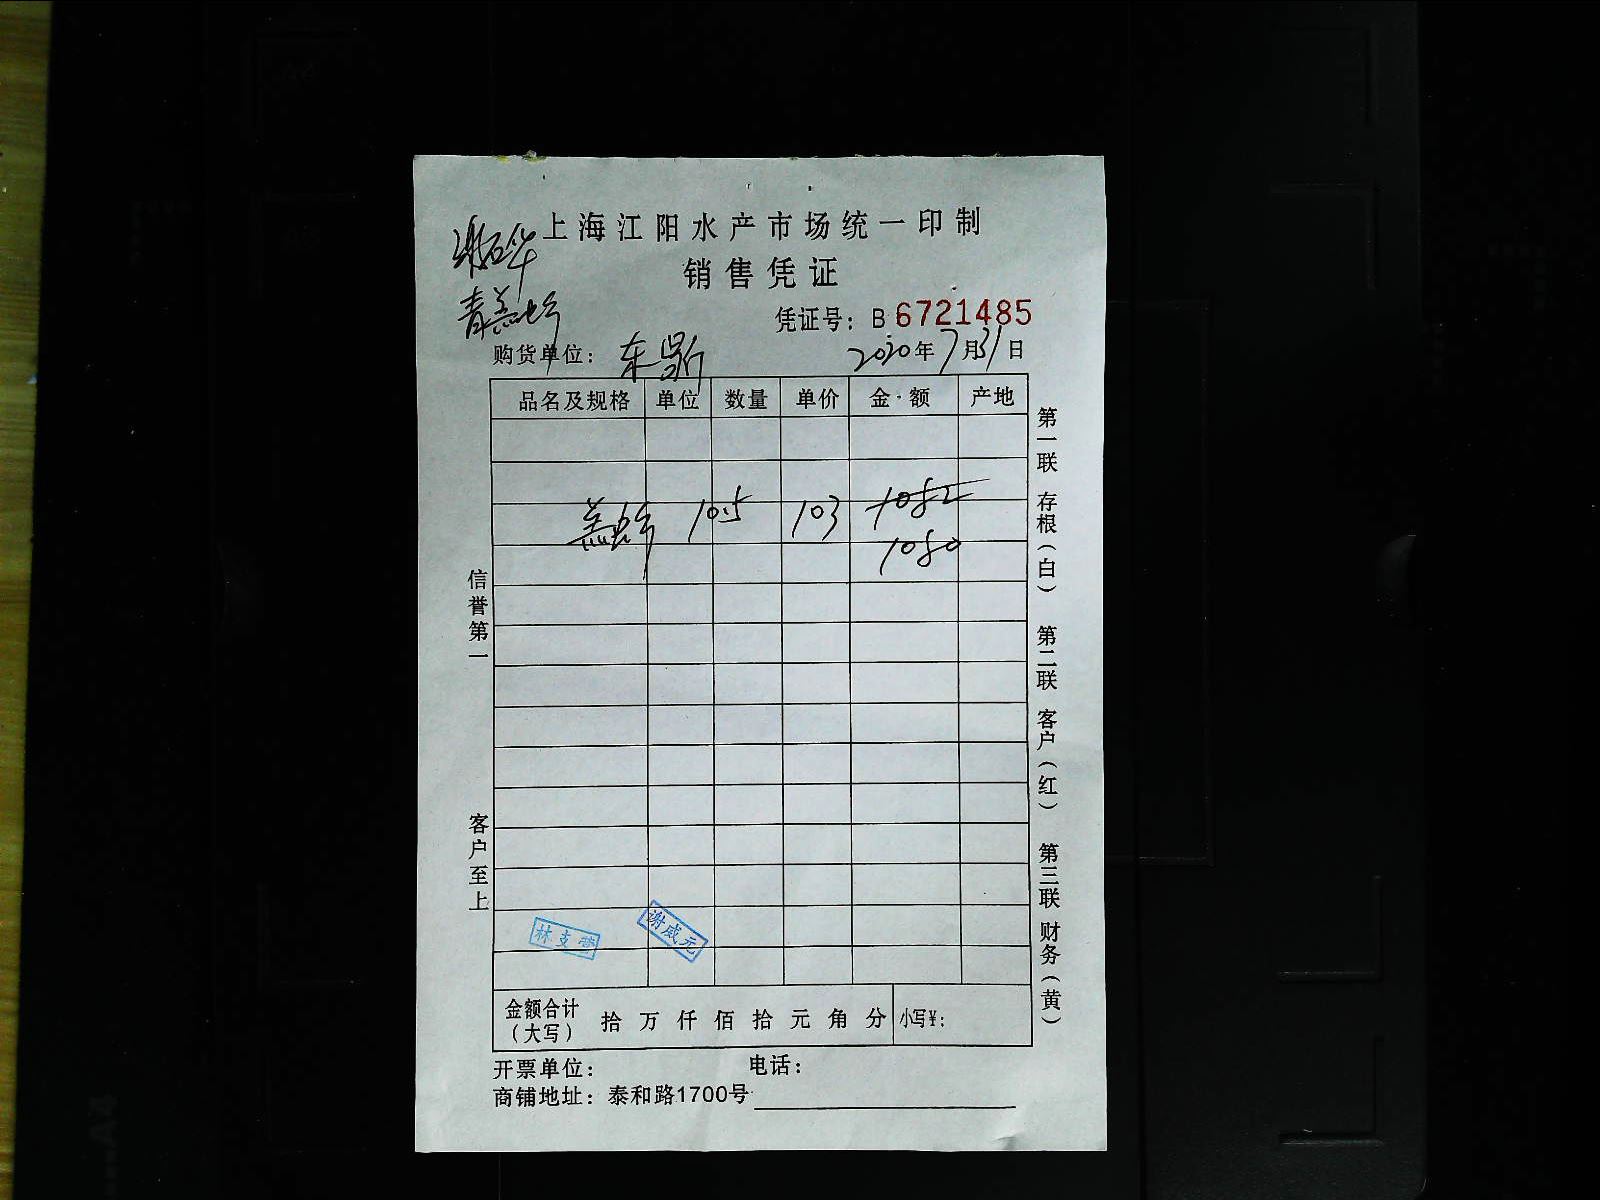 上海江阳水产市场统一印制
销售凭证
凭证号：B 6721485
购货单位：东 2020年7月31日
品名及规格 单位 数量 单价 金·额 产地
10.5 103 1082
1080
信誉第一
客户至上
第一联 存根（白） 第二联 客户（红） 第三联 财务（黄）
林支营
谢咸元
金额合计（大写） 拾 万 仟 佰 拾 元 角 分 小写¥：
开票单位： 电话：
商铺地址：泰和路1700号